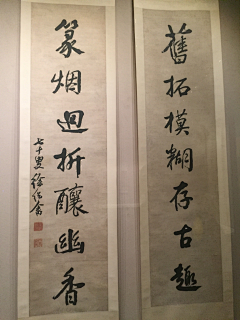 舊拓模糊存古趣
篆烟迴折釀幽香
七十叟